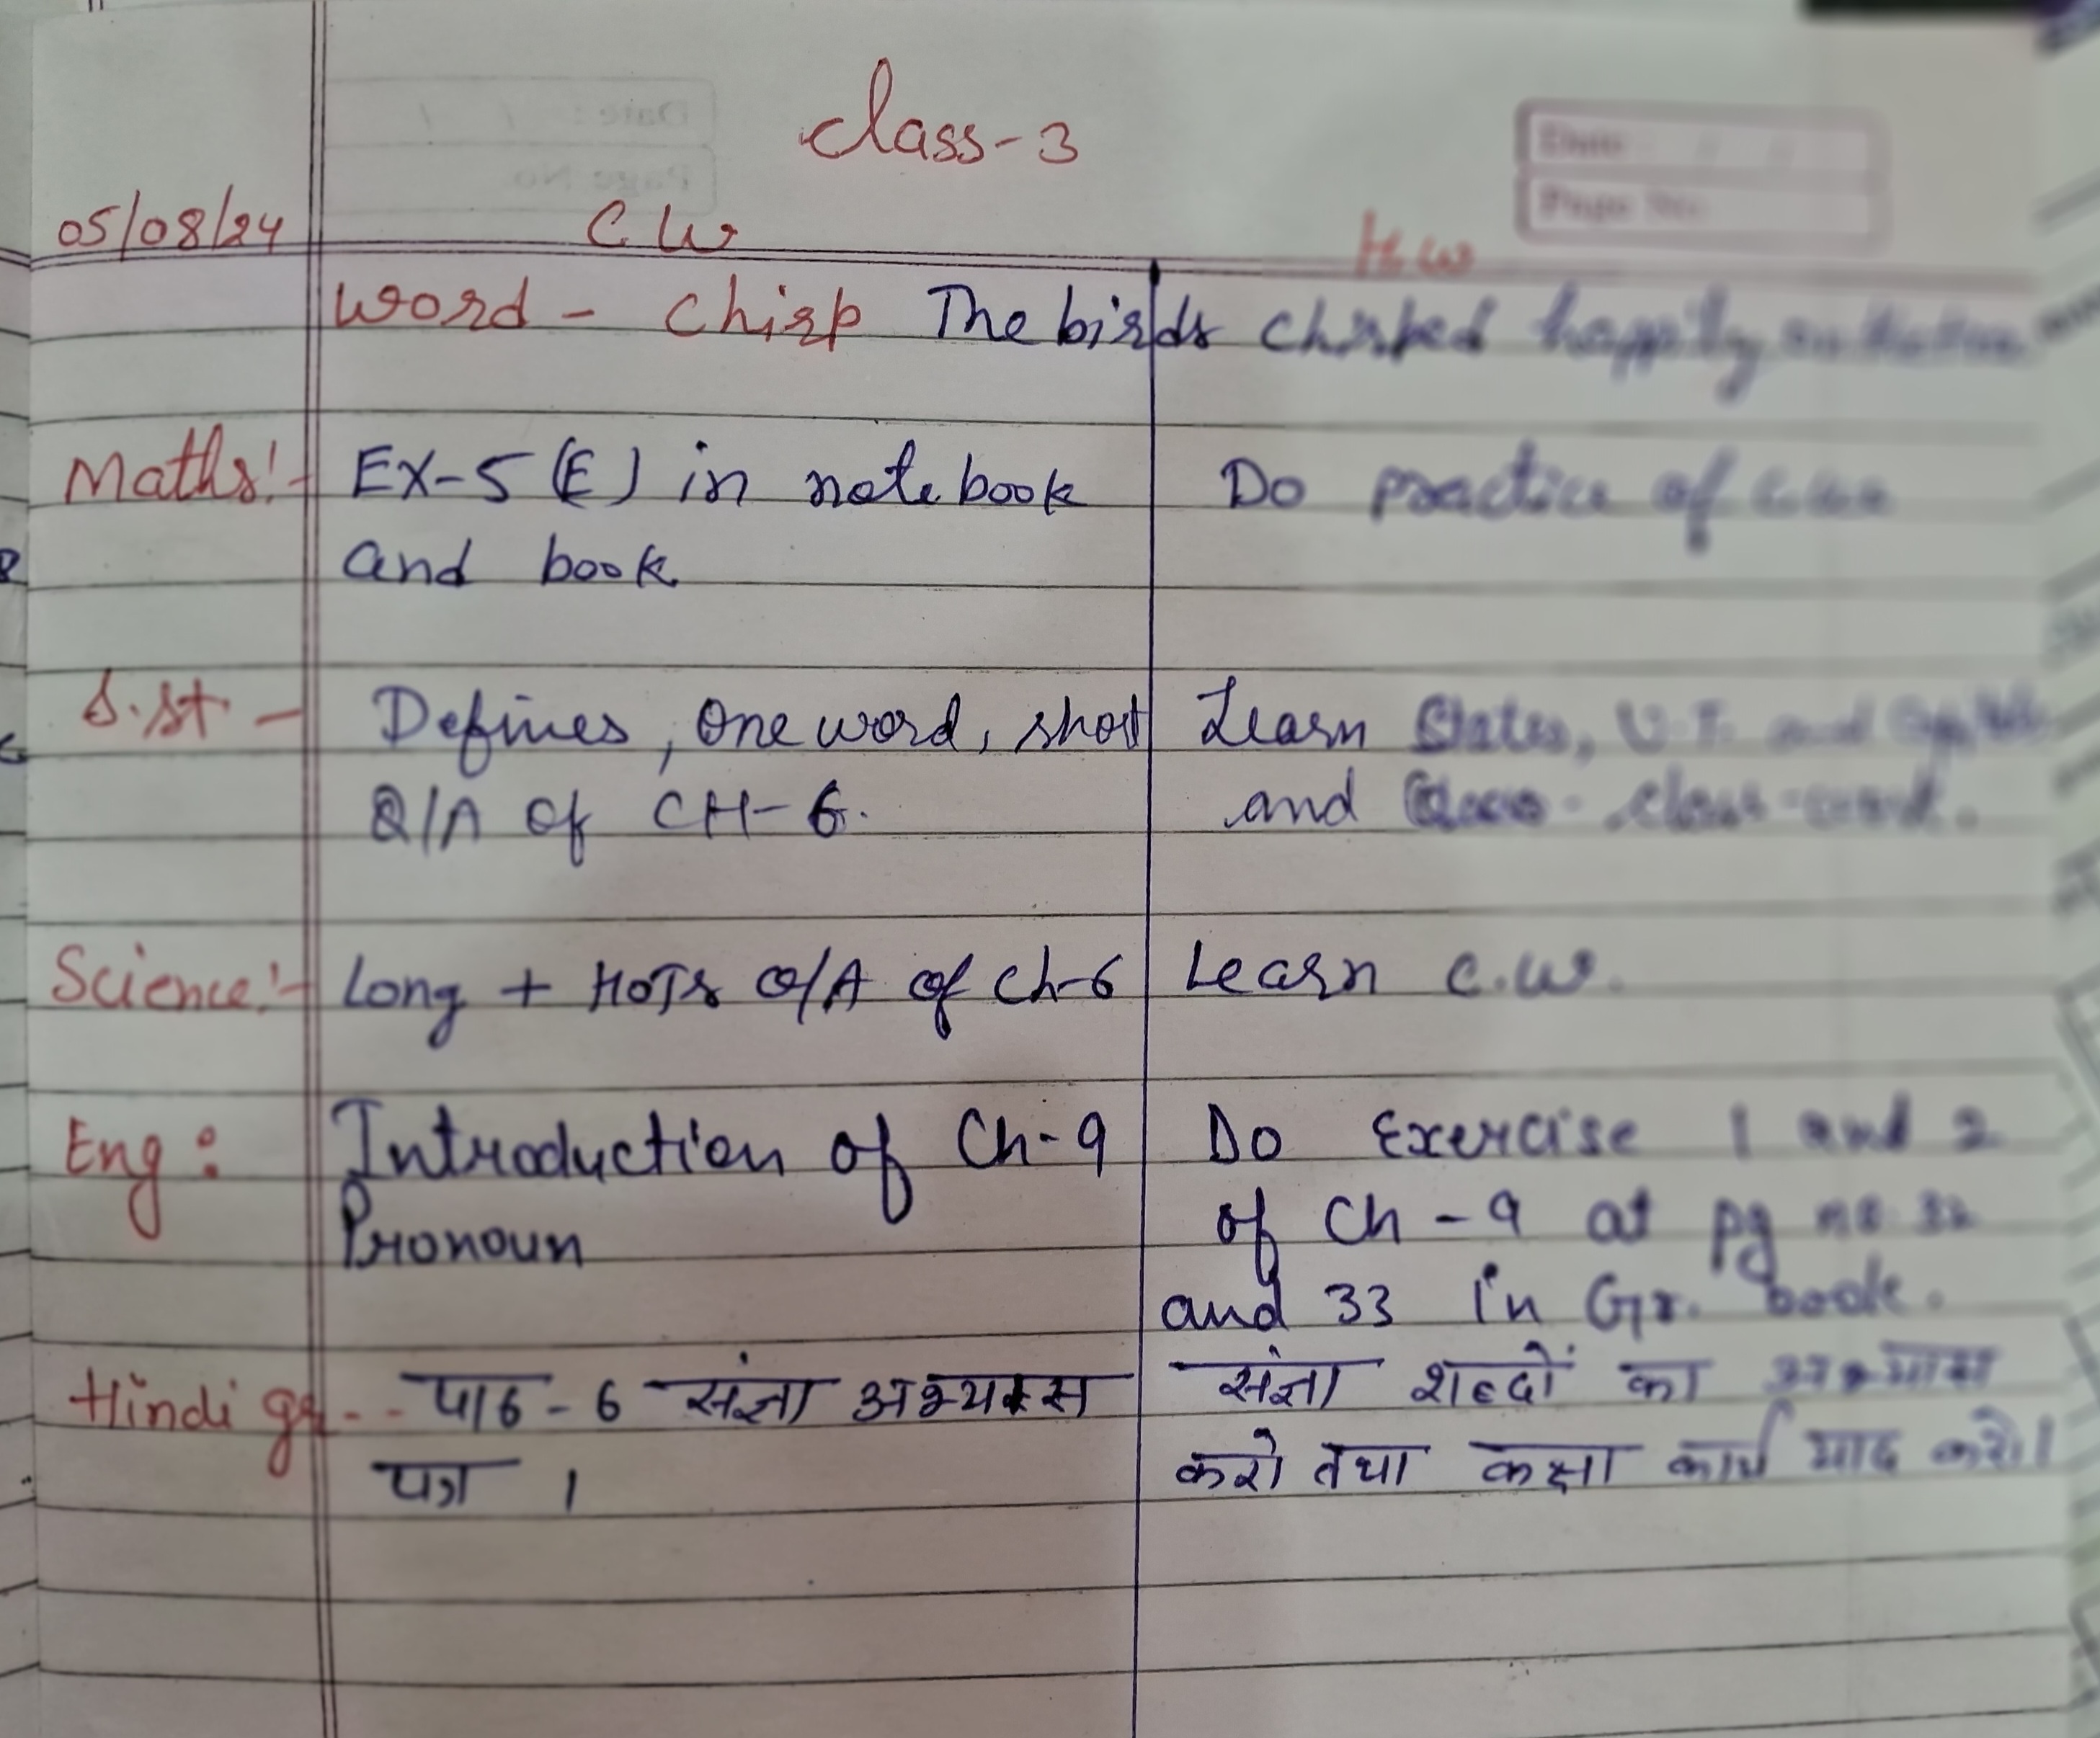 class-3
05/08/24 C W H.W
Word - Chirp The birds chirped happily
Maths:- EX-5 (E) in notebook Do practice of
and book
S.st - Defines, One word, short Learn States, U.T. and
Q/A of CH-6. and class-work.
Science:- Long + HOTs Q/A of Ch-6 Learn C.W.
Eng: Introduction of Ch-9 Do Exercise 1 and 2
Pronoun of Ch-9 at pg no. 32
and 33 in Gr. book.
Hindi gr.-- पाठ-6 संज्ञा अभ्यास संज्ञा शब्दों का अभ्यास
पत्र । करो तथा कक्षा कार्य याद करो।